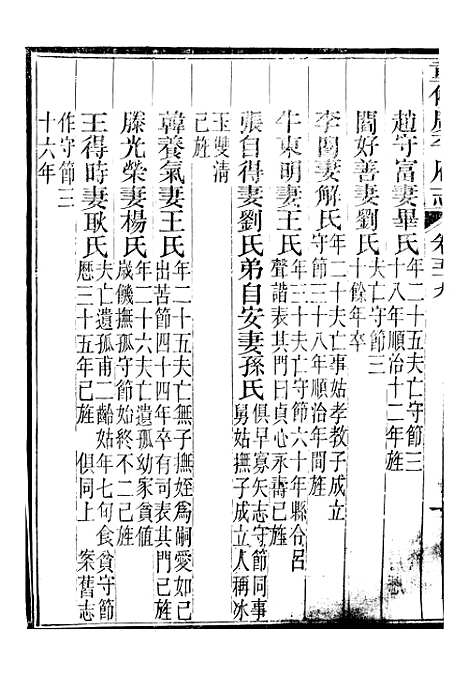 重修廣平府志 卷五十九
趙守富妻畢氏 年二十五夫亡守節三
十八年順治十二年旌
閻好善妻劉氏 夫亡守節三
十餘年卒
李閣妻解氏 年二十夫亡事姑孝教子成立
守節三十八年順治年間旌
牛東明妻王氏 年三十夫亡守節六十年縣令呂
聲諧表其門曰貞心永壽已旌
張自得妻劉氏弟自安妻孫氏 俱早寡矢志守節同事
舅姑撫子成立人稱冰
玉雙清
已旌
韓養氣妻王氏 年二十五夫亡無子撫姪為嗣愛如己
出苦節四十四年卒有司表其門已旌
滕光榮妻楊氏 年二十六夫亡遺孤幼家貧値
歲饑撫孤守節始終不二已旌
王得時妻耿氏 夫亡遺孤甫二齡姑年七旬食貧守節
歷三十五年已旌 俱同上 案舊志
作守節三
十六年